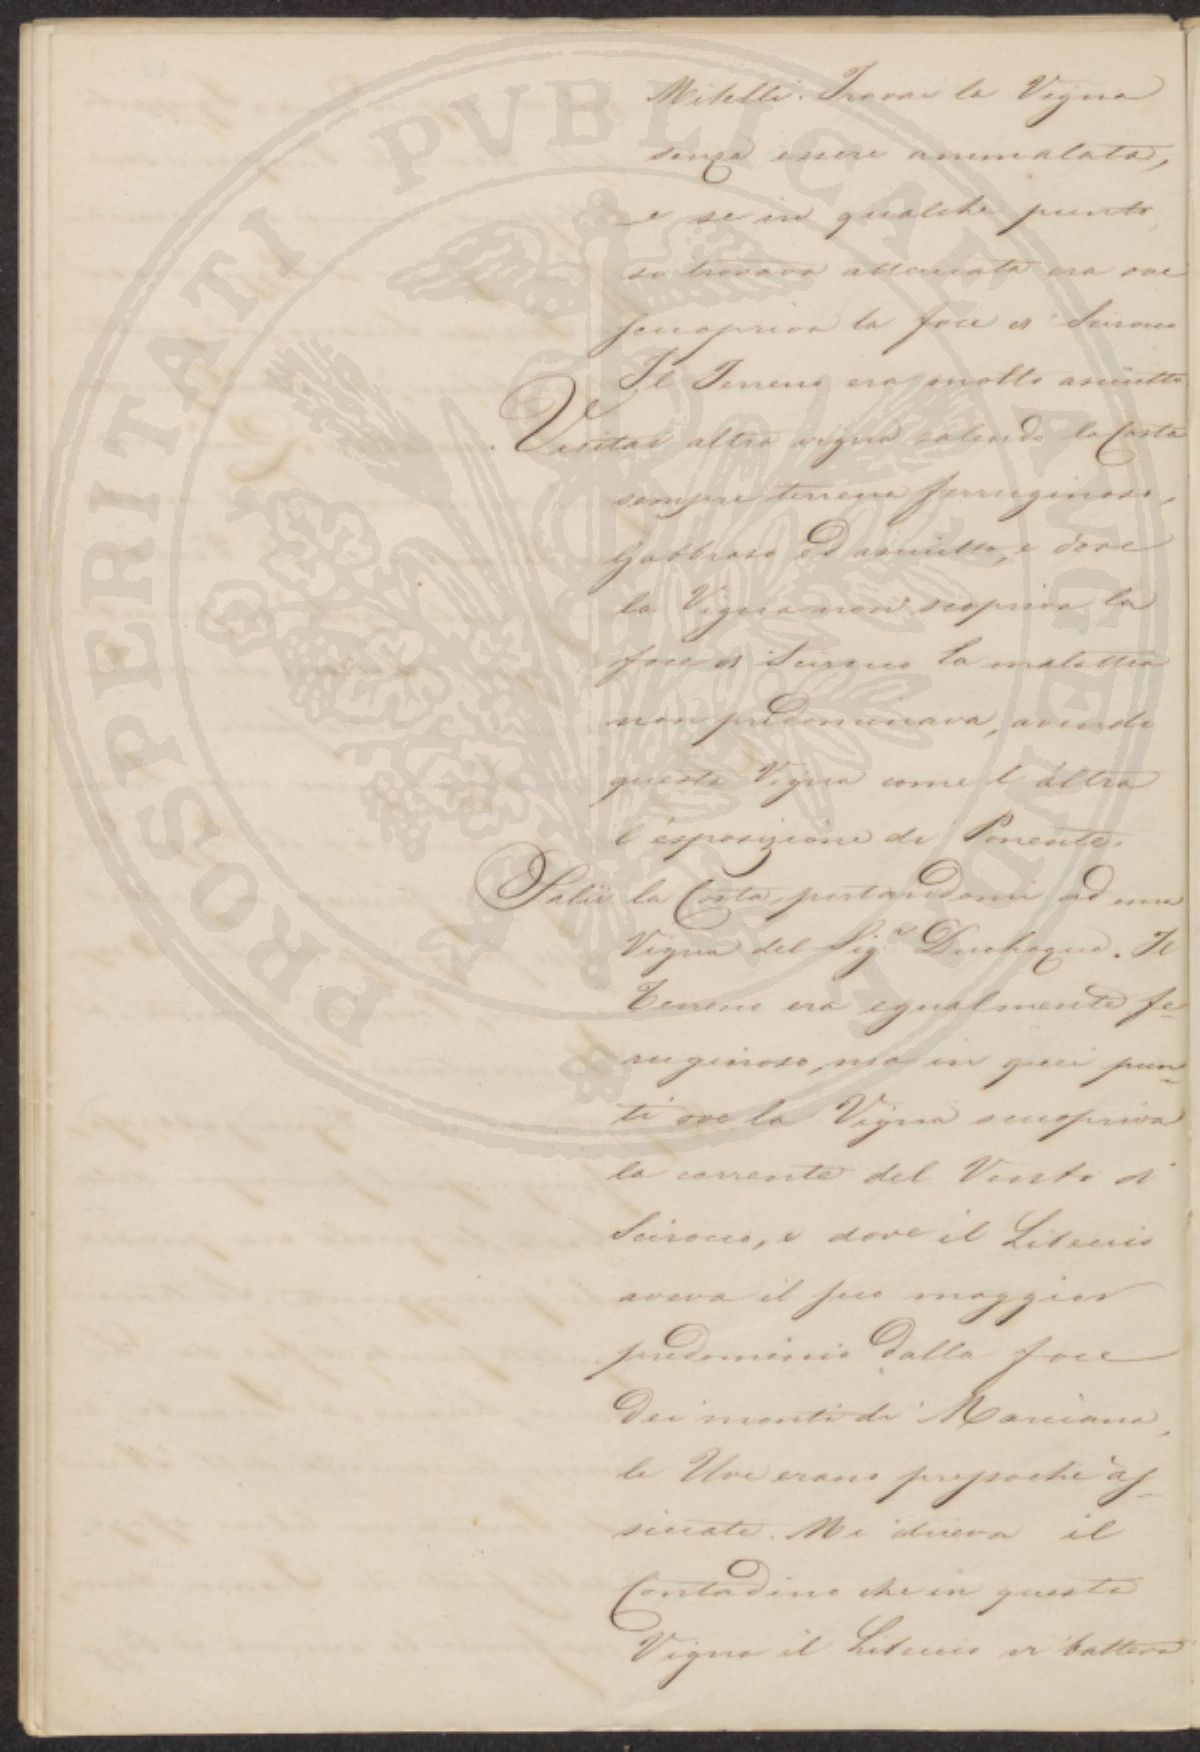 Mitelli. Trovai la Vigna
senza essere ammalata,
e se in qualche punto
si trovava attaccata era ove
scuopriva la foce di Scirocco
Il Terreno era molto asciutto
Visitai altra vigna salendo la Costa
sempre terreno ferruginoso,
Gabbroso ed asciutto, e dove
la Vigna non scopriva la
foce di Scirocco la malattia
non predominava, avendo
questa Vigna come l'altra
l'esposizione di Ponente.
Salii la Costa, portandomi ad una
Vigna del Sig.r Duchoquè. Il
Terreno era egualmente fe=
ruginoso, ma in quei pun=
ti ove la Vigna scuopriva
la corrente del Vento di
Scirocco, e dove il Libeccio
aveva il suo maggior
predominio dalla foce
dei monti di Marciana,
le Uve erano pressochè as=
siccate. Mi diceva il
Contadino che in questa
Vigna il Libeccio vi batteva
PROSPERITATI PVBLICAE AVGENDAE